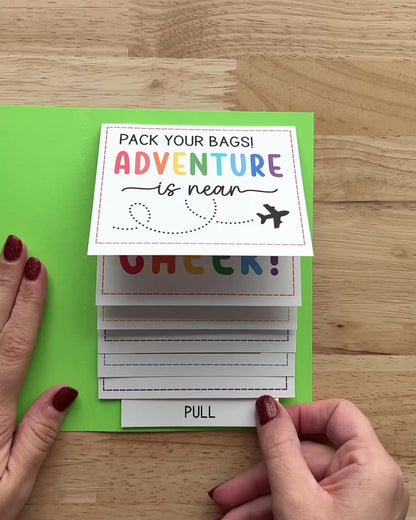 PACK YOUR BAGS!
ADVENTURE
is near
CHEEK!
PULL